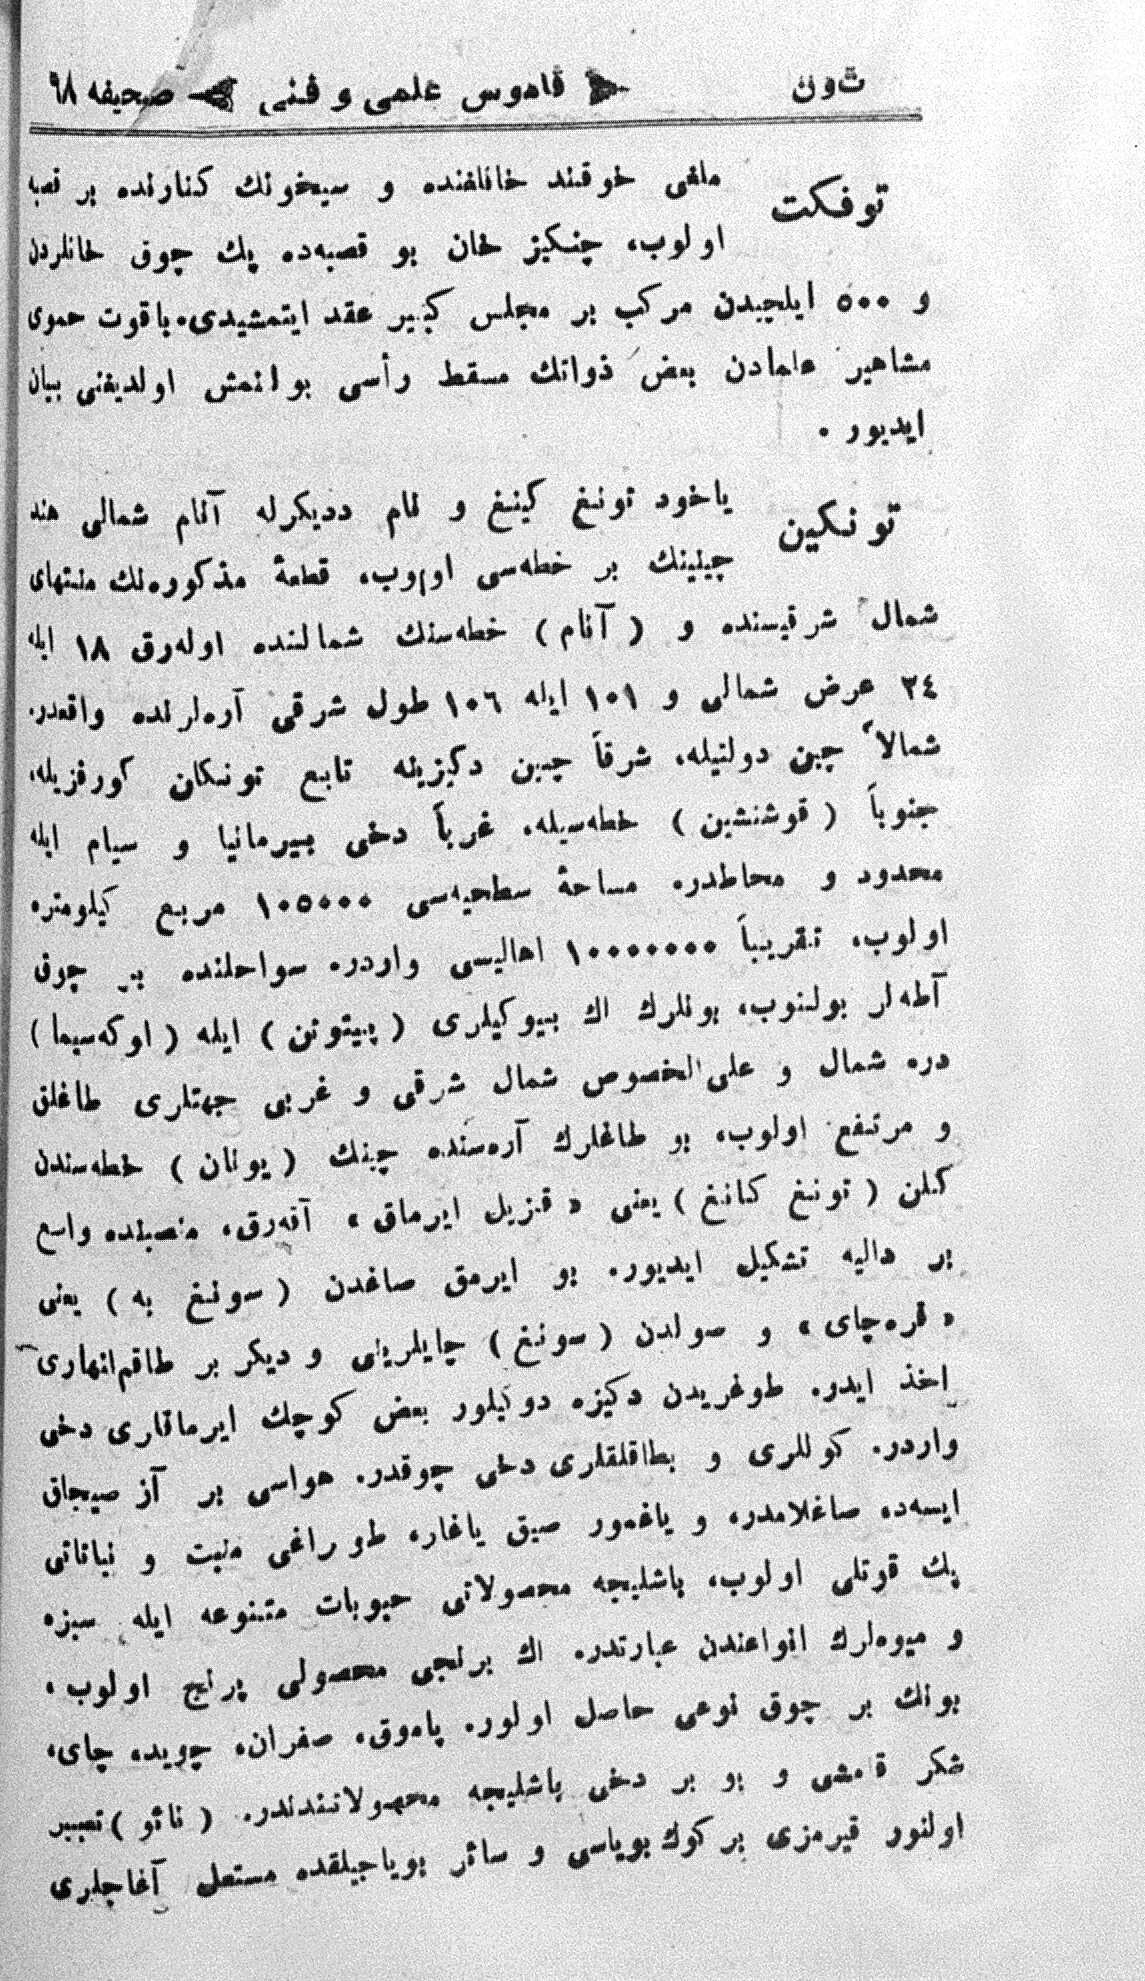 ثون قاموس علمی و فنی صحیفه ٦٨
تونکت ملغی خوقند خانلغنده و سیحونك کنارنده بر قصبه
اولوب، چنکیز خان بو قصبه‌ده پك چوق خانلردن
و ٥٠٠ ایلچیدن مرکب بر مجلس کبیر عقد ایتمشیدی. یاقوت حموی
مشاهیر علمادن بعض ذواتك مسقط رأسی بولنمش اولدیغنی بیان
ایدیور .
تونکین یاخود تونغ کینغ و نام دیکرله آنام شمالی هند
چینینك بر خطه‌سی اولوب، قطعهٔ مذکوره‌نك منتهای
شمال شرقیسنده و ( آنام ) خطه‌سنك شمالنده اوله‌رق ١٨ ایله
٢٤ عرض شمالی و ١٠١ ایله ١٠٦ طول شرقی آره‌لرنده واقعدر.
شمالاً چین دولتیله، شرقاً چین دکیزینه تابع تونکان کورفزیله،
جنوباً ( قوشنشین ) خطه‌سیله، غرباً دخی بیرمانیا و سیام ایله
محدود و محاطدر. مساحهٔ سطحیه‌سی ١٠٥٠٠٠ مربع کیلومتره
اولوب، تقریباً ١٠٠٠٠٠٠٠ اهالیسی واردر. سواحلنده بر چوق
آطه‌لر بولنوب، بونلرك اك بیوکیلری ( پیتونن ) ایله ( اوکه‌سیما )
در. شمال و علی الخصوص شمال شرقی و غربی جهتلری طاغلق
و مرتفع اولوب، بو طاغلرك آره‌سنده چینك ( یونان ) خطه‌سندن
کلن ( تونغ کانغ ) یعنی « قزیل ایرماق » آقه‌رق، منصبنده واسع
بر دالیه تشکیل ایدیور. بو ایرمق صاغدن ( سونغ به ) یعنی
« قره‌چای » و صولدن ( سونغ ) چایلرینی و دیکر بر طاقم انهاری
اخذ ایدر. طوغریدن دکیزه دوکیلور بعض کوچك ایرماقلری دخی
واردر. کوللری و بطاقلقلری دخی چوقدر. هواسی بر آز صیجاق
ایسه‌ده صاغلامدر، و یاغمور صیق یاغار، طوراغی منبت و نباتاتی
پك قوتلی اولوب، باشلیجه محصولاتی حبوبات متنوعه ایله سبزه
و میوه‌لرك انواعندن عبارتدر. اك برنجی محصولی پرنج اولوب،
بونك بر چوق نوعی حاصل اولور. پاموق، صفران، چوید، چای،
شکر قامشی و بو بر دخی باشلیجه محصولاتندندر. ( نائو ) تعبیر
اولنور قیرمزی بر کوك بویاسی و سائر بویاجیلقده مستعل آغاجلری